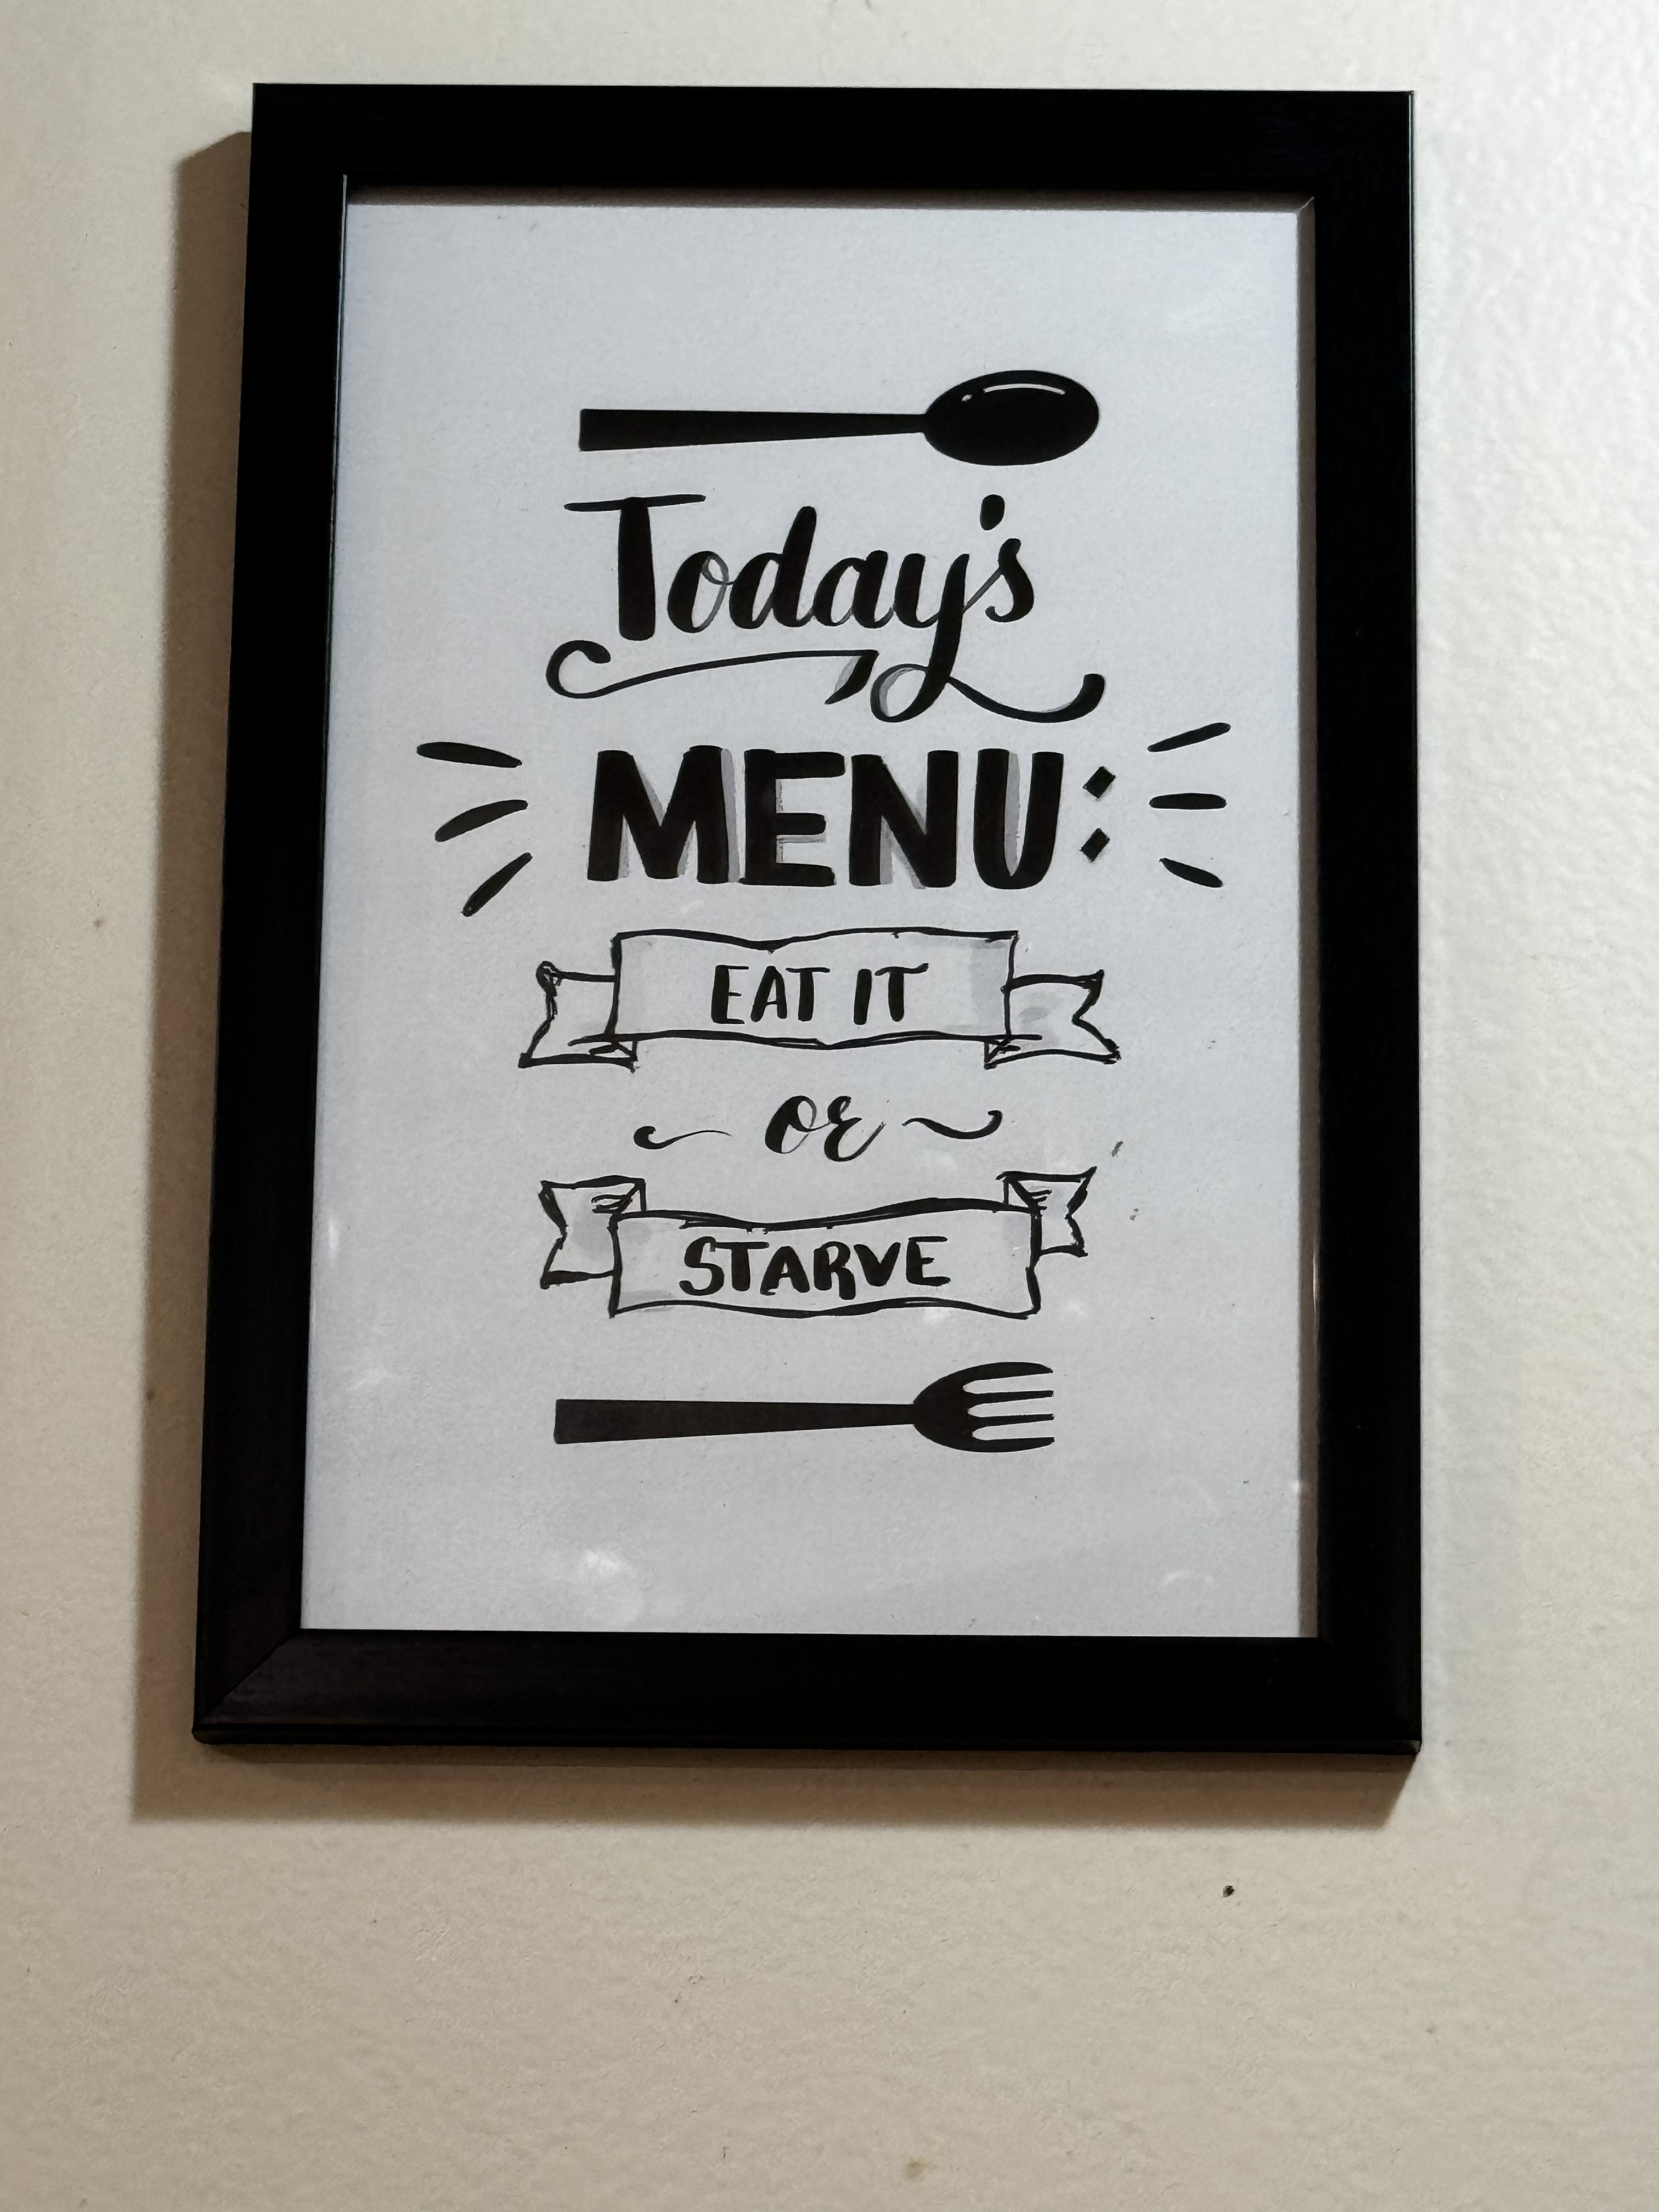 Today's
MENU:
EAT IT
or
STARVE